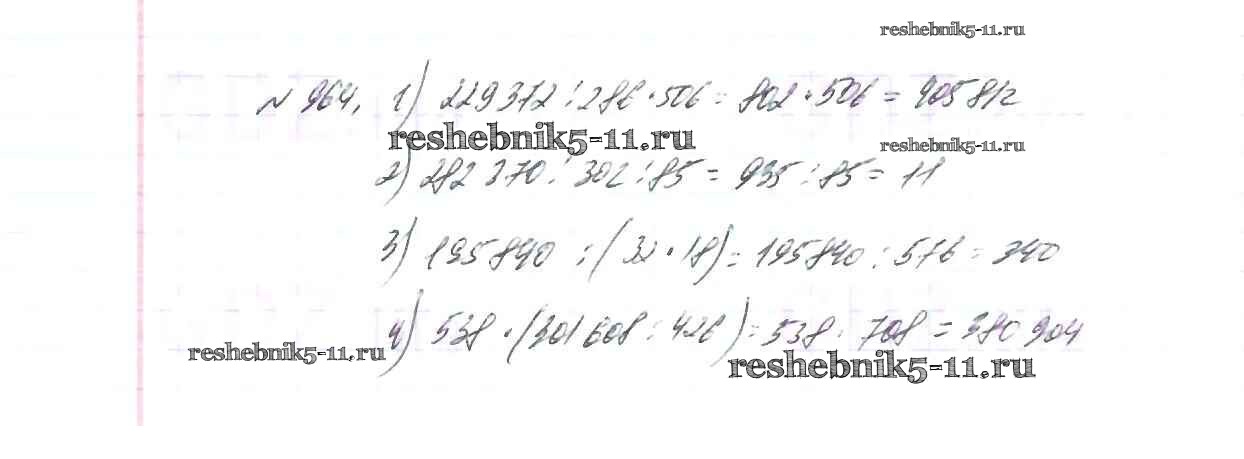 reshebnik5-11.ru
№ 964. 1) 229 372 : 286 · 506 = 802 · 506 = 405 812
reshebnik5-11.ru
reshebnik5-11.ru
2) 282 370 : 302 : 85 = 935 : 85 = 11
3) 195 840 : (32 · 18) = 195 840 : 576 = 340
4) 538 · (301 608 : 426) = 538 · 708 = 380 904
reshebnik5-11.ru
reshebnik5-11.ru